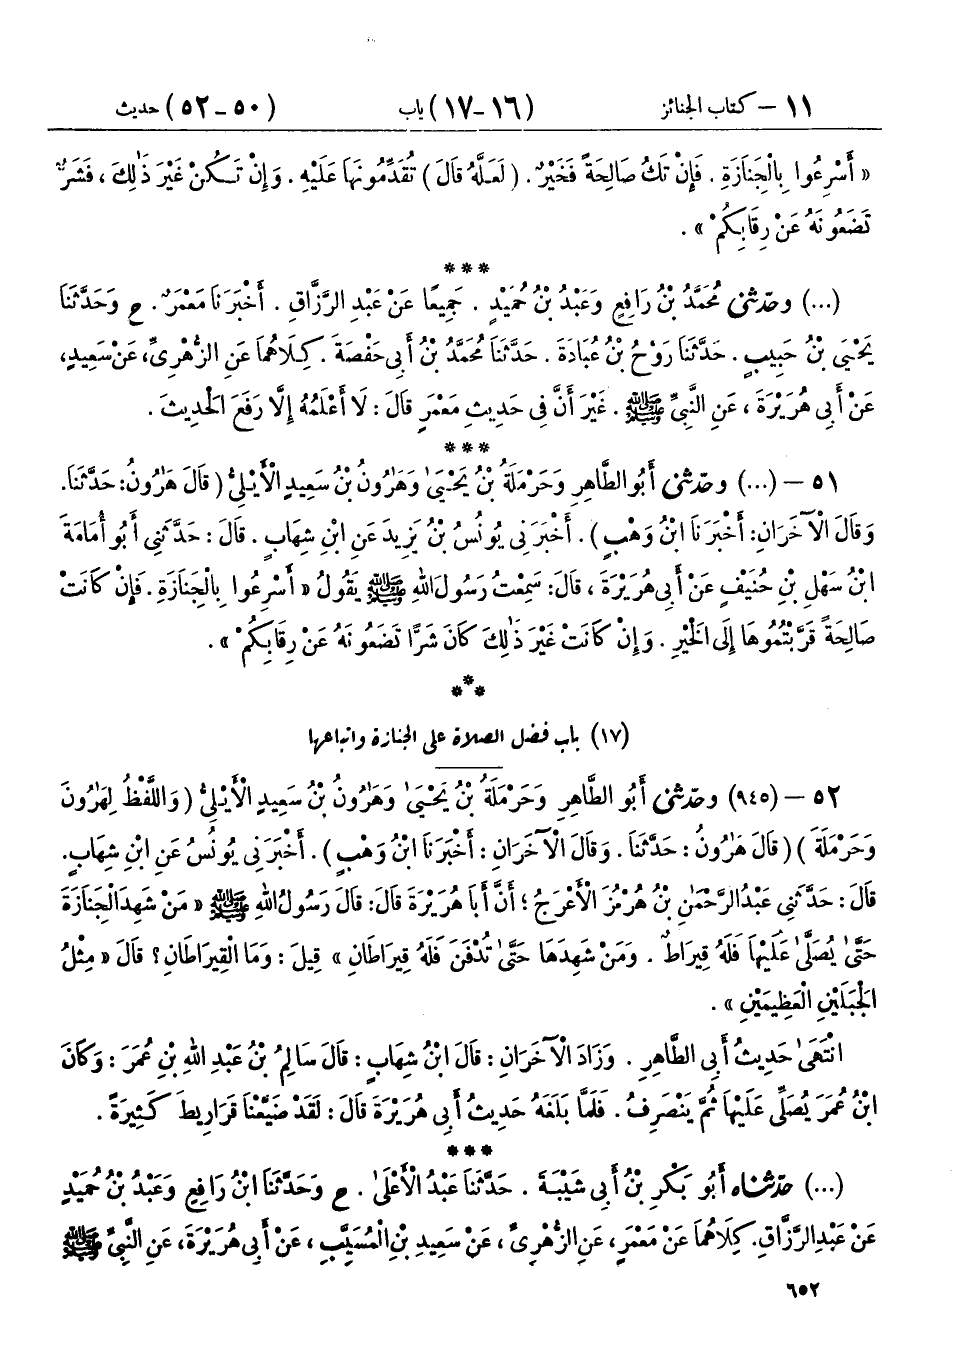 ١١ – كتاب الجنائز (١٦-١٧) باب (٥٠-٥٢) حديث
« أَسْرِعُوا بِالْجَنَازَةِ . فَإِنْ تَكُ صَالِحَةً فَخَيْرٌ . ( لَعَلَّهُ قَالَ ) تُقَدِّمُونَهَا عَلَيْهِ . وَإِنْ تَكُنْ غَيْرَ ذَٰلِكَ ، فَشَرٌّ
تَضَعُونَهُ عَنْ رِقَابِكُمْ » .
***
(...) وحدثنى مُحَمَّدُ بْنُ رَافِعٍ وَعَبْدُ بْنُ حُمَيْدٍ . جَمِيعًا عَنْ عَبْدِ الرَّزَّاقِ . أَخْبَرَنَا مَعْمَرٌ . ح وَحَدَّثَنَا
يَحْيَى بْنُ حَبِيبٍ . حَدَّثَنَا رَوْحُ بْنُ عُبَادَةَ . حَدَّثَنَا مُحَمَّدُ بْنُ أَبِى حَفْصَةَ . كِلَاهُمَا عَنِ الزُّهْرِىِّ، عَنْ سَعِيدٍ،
عَنْ أَبِى هُرَيْرَةَ ، عَنِ النَّبِىِّ ﷺ . غَيْرَ أَنَّ فِى حَدِيثِ مَعْمَرٍ قَالَ : لَا أَعْلَمُهُ إِلَّا رَفَعَ الْحَدِيثَ .
***
٥١ – (...) وحدثنى أَبُو الطَّاهِرِ وَحَرْمَلَةُ بْنُ يَحْيَىٰ وَهَٰرُونُ بْنُ سَعِيدٍ الْأَيْلِىُّ ( قَالَ هَٰرُونُ: حَدَّثَنَا.
وَقَالَ الْآخَرَانِ: أَخْبَرَنَا ابْنُ وَهْبٍ ) . أَخْبَرَنِى يُونُسُ بْنُ يَزِيدَ عَنِ ابْنِ شِهَابٍ . قَالَ : حَدَّثَنِى أَبُو أُمَامَةَ
ابْنُ سَهْلِ بْنِ حُنَيْفٍ عَنْ أَبِى هُرَيْرَةَ ، قَالَ: سَمِعْتُ رَسُولَ اللهِ ﷺ يَقُولُ « أَسْرِعُوا بِالْجَنَازَةِ . فَإِنْ كَانَتْ
صَالِحَةً قَرَّبْتُمُوهَا إِلَى الْخَيْرِ . وَإِنْ كَانَتْ غَيْرَ ذَٰلِكَ كَانَ شَرًّا تَضَعُونَهُ عَنْ رِقَابِكُمْ » .
***
(١٧) باب فضل الصلاة على الجنازة واتباعها
٥٢ – (٩٤٥) وحدثنى أَبُو الطَّاهِرِ وَحَرْمَلَةُ بْنُ يَحْيَىٰ وَهَٰرُونُ بْنُ سَعِيدٍ الْأَيْلِىُّ ( وَاللَّفْظُ لِهَٰرُونَ
وَحَرْمَلَةَ ) ( قَالَ هَٰرُونُ : حَدَّثَنَا . وَقَالَ الْآخَرَانِ : أَخْبَرَنَا ابْنُ وَهْبٍ ) . أَخْبَرَنِى يُونُسُ عَنِ ابْنِ شِهَابٍ.
قَالَ : حَدَّثَنِى عَبْدُ الرَّحْمَٰنِ بْنُ هُرْمُزَ الْأَعْرَجُ ؛ أَنَّ أَبَا هُرَيْرَةَ قَالَ: قَالَ رَسُولُ اللهِ ﷺ « مَنْ شَهِدَ الْجَنَازَةَ
حَتَّىٰ يُصَلَّىٰ عَلَيْهَا فَلَهُ قِيرَاطٌ . وَمَنْ شَهِدَهَا حَتَّىٰ تُدْفَنَ فَلَهُ قِيرَاطَانِ » قِيلَ : وَمَا الْقِيرَاطَانِ؟ قَالَ « مِثْلُ
الْجَبَلَيْنِ الْعَظِيمَيْنِ » .
انْتَهَىٰ حَدِيثُ أَبِى الطَّاهِرِ . وَزَادَ الْآخَرَانِ : قَالَ ابْنُ شِهَابٍ : قَالَ سَالِمُ بْنُ عَبْدِ اللهِ بْنِ عُمَرَ : وَكَانَ
ابْنُ عُمَرَ يُصَلِّى عَلَيْهَا ثُمَّ يَنْصَرِفُ . فَلَمَّا بَلَغَهُ حَدِيثُ أَبِى هُرَيْرَةَ قَالَ : لَقَدْ ضَيَّعْنَا قَرَارِيطَ كَثِيرَةً .
***
(...) حدثناه أَبُو بَكْرِ بْنُ أَبِى شَيْبَةَ . حَدَّثَنَا عَبْدُ الْأَعْلَىٰ . ح وَحَدَّثَنَا ابْنُ رَافِعٍ وَعَبْدُ بْنُ حُمَيْدٍ
عَنْ عَبْدِ الرَّزَّاقِ. كِلَاهُمَا عَنْ مَعْمَرٍ، عَنِ الزُّهْرِىِّ ، عَنْ سَعِيدِ بْنِ الْمُسَيَّبِ ، عَنْ أَبِى هُرَيْرَةَ، عَنِ النَّبِىِّ ﷺ
٦٥٢